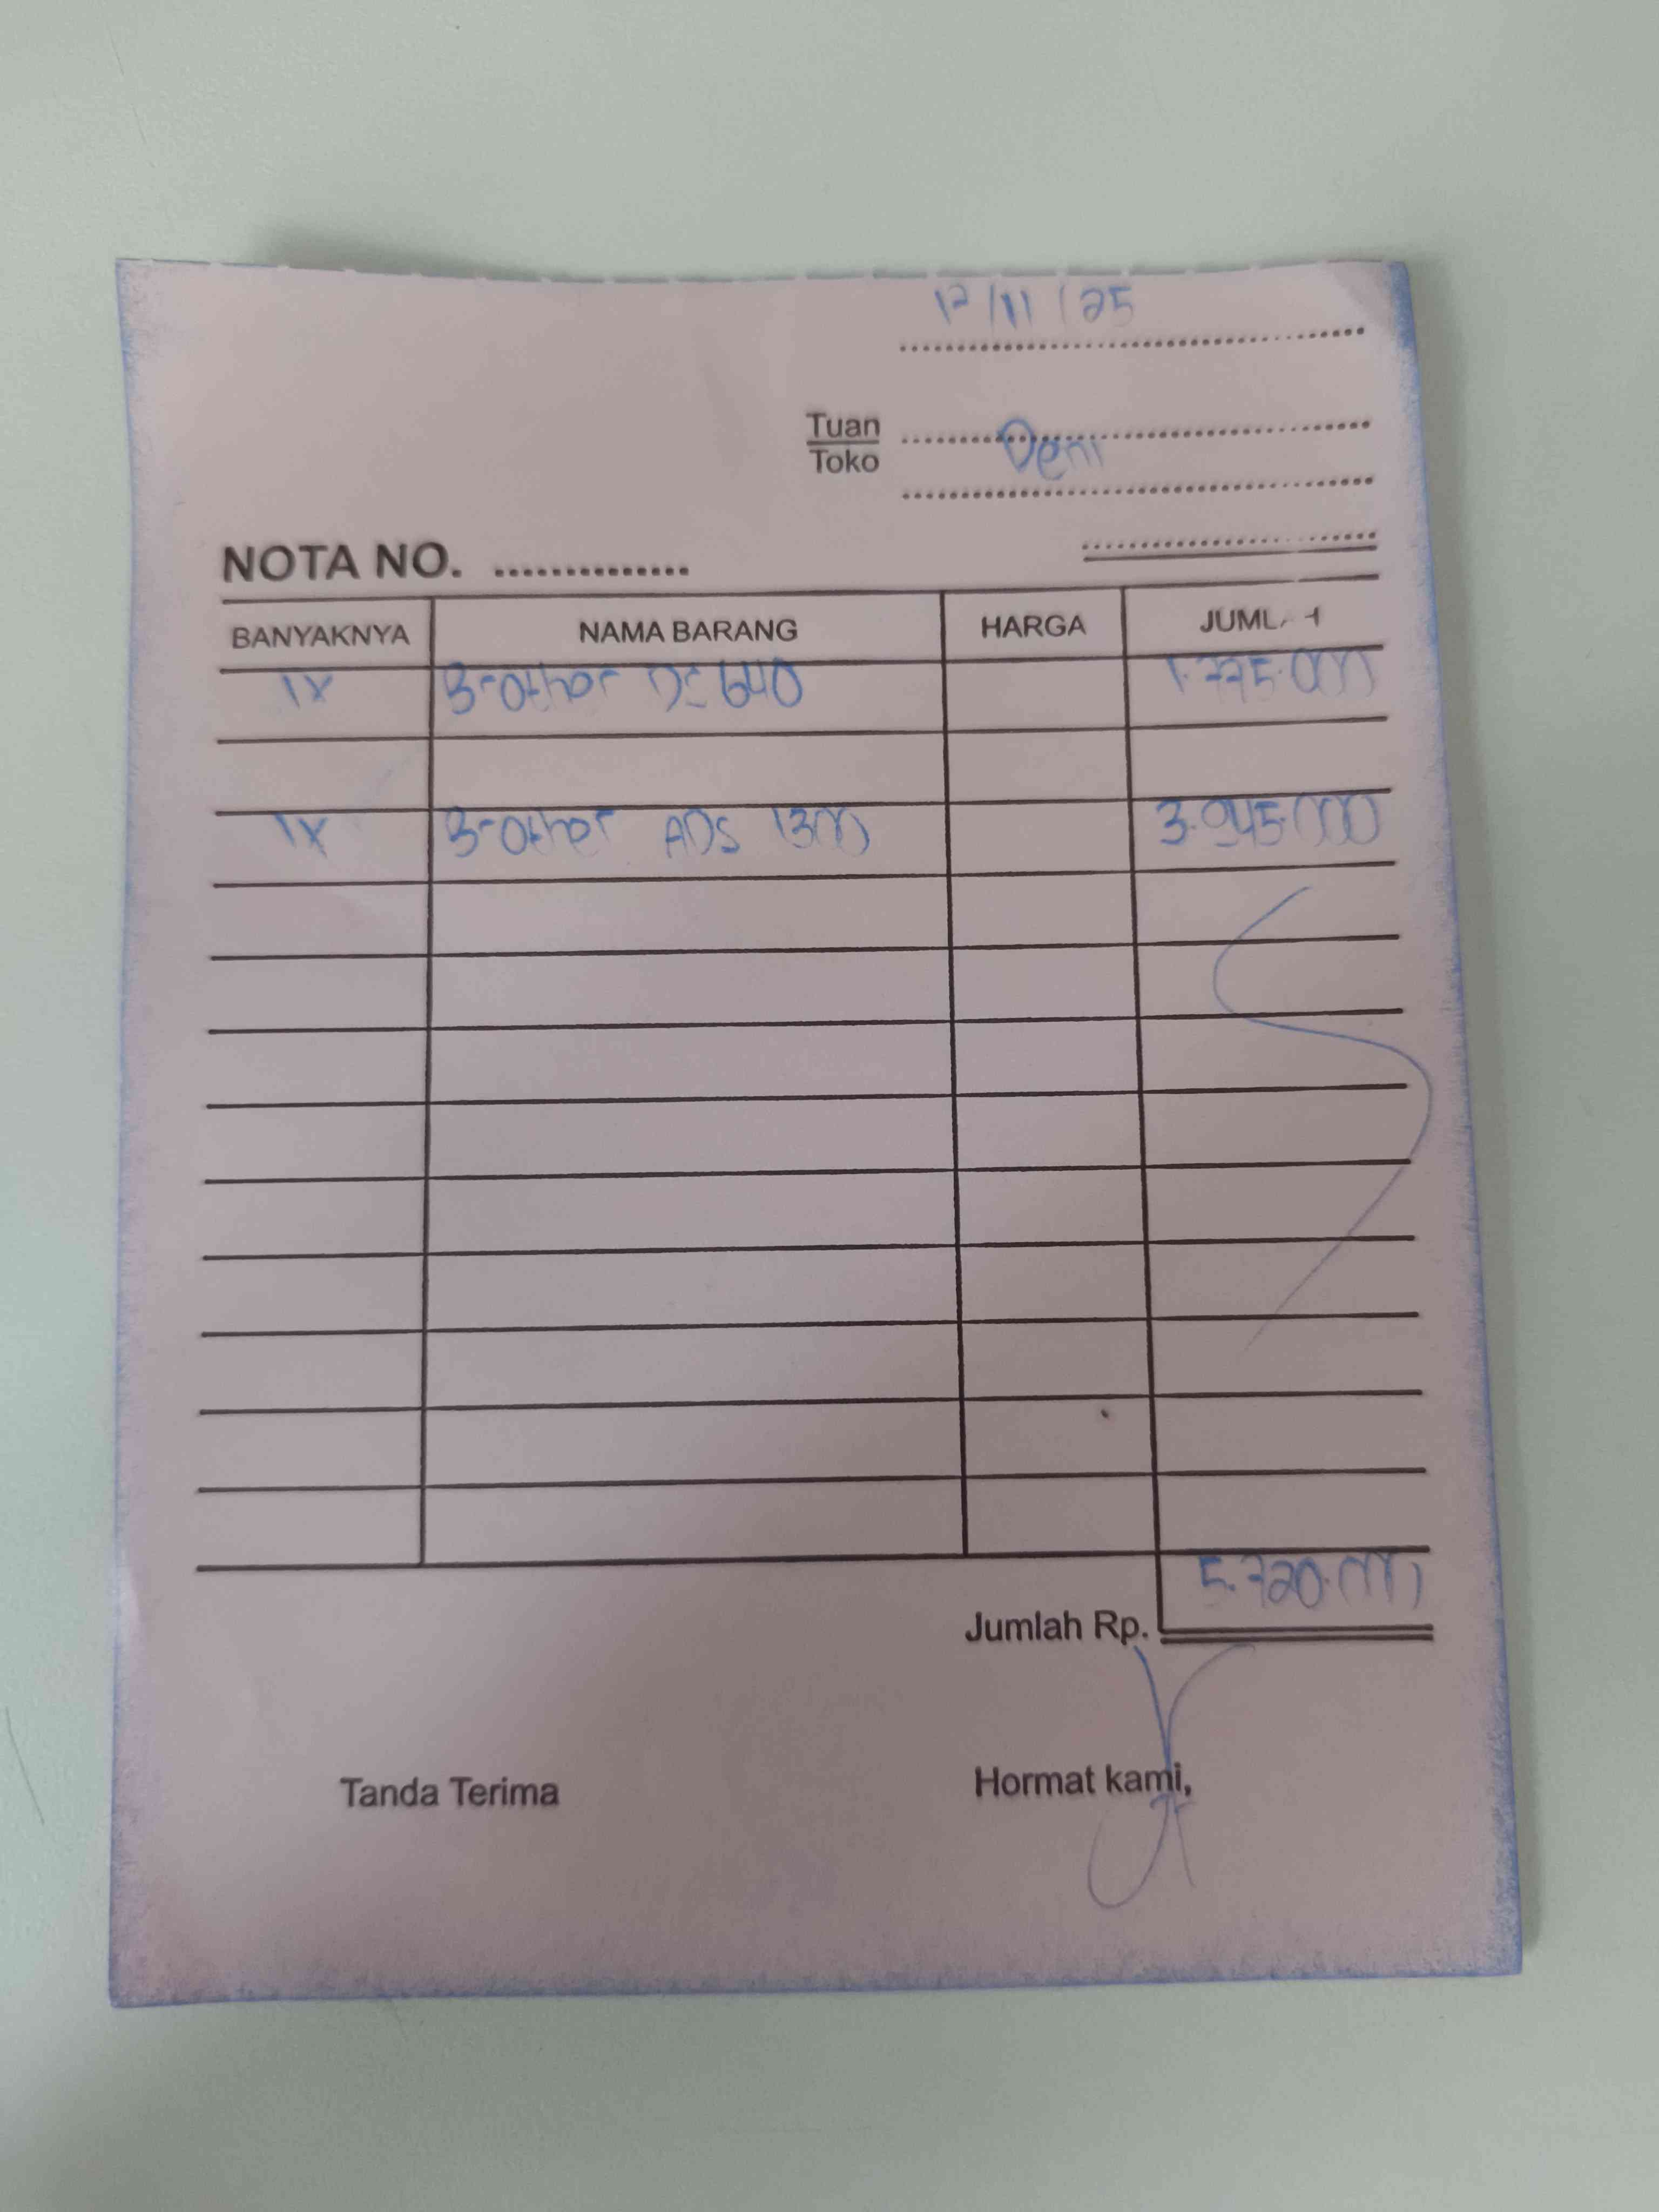 12/11/25
Tuan
Toko
Deni
NOTA NO. ..............
BANYAKNYA NAMA BARANG HARGA JUMLAH
1x Brother DS 640 1.775.000
1x Brother ADS 1300 3.945.000
Jumlah Rp. 5.720.000
Tanda Terima Hormat kami,